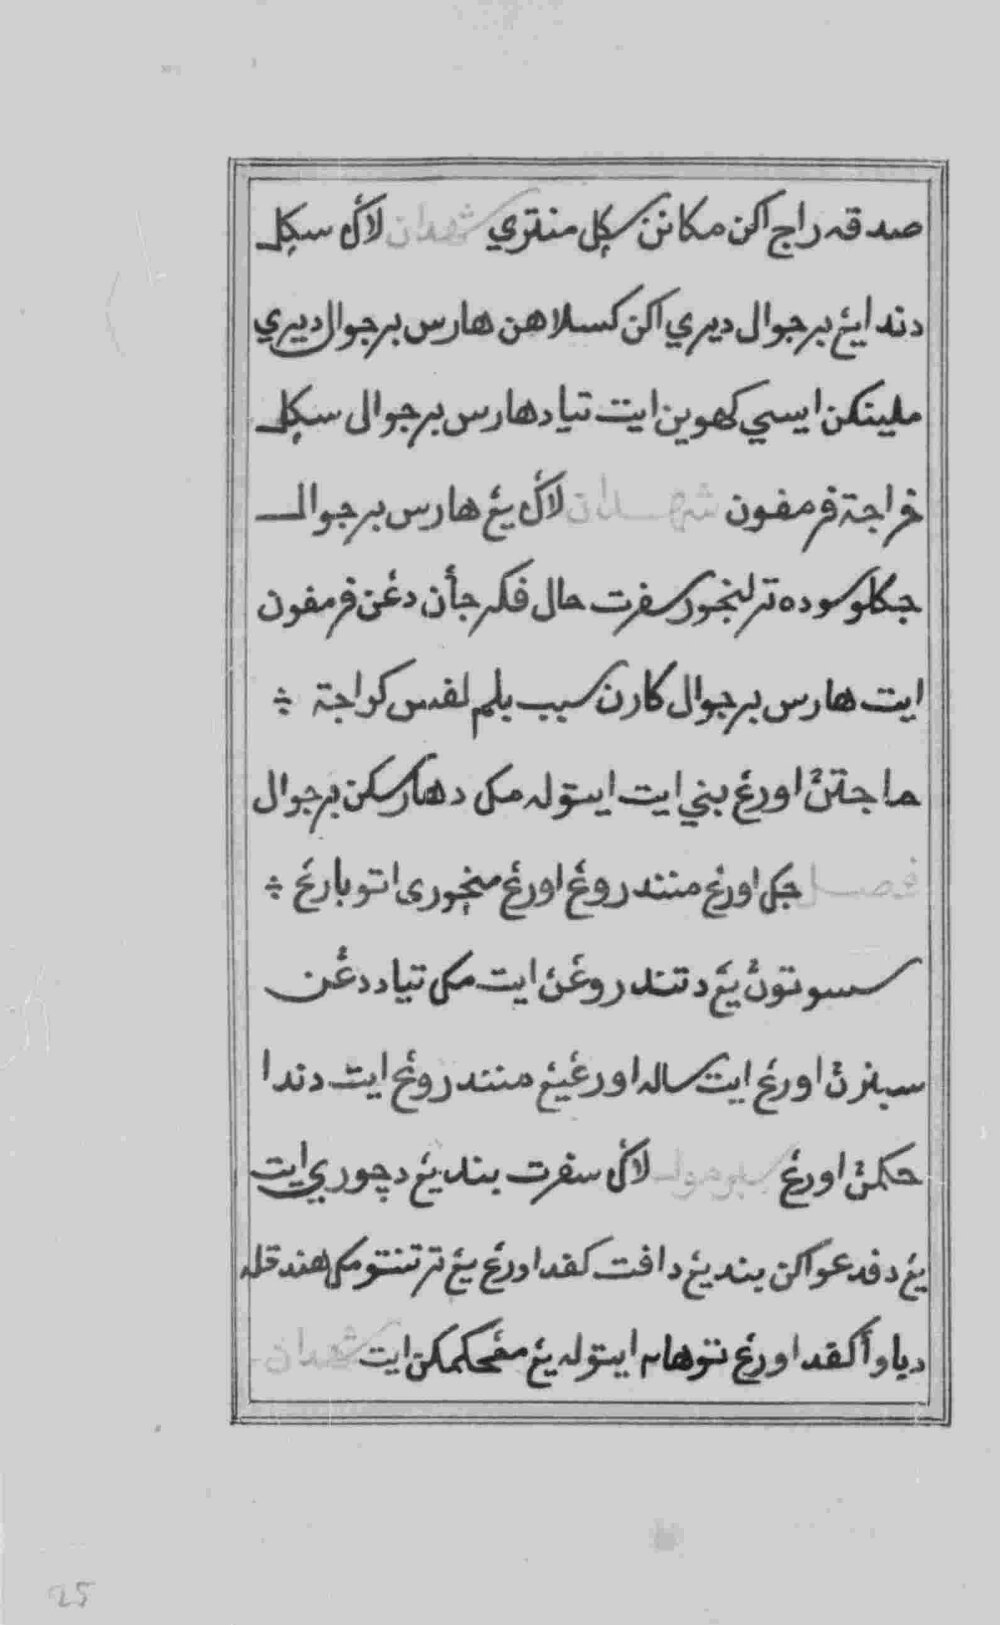 صدقه راج اكن مكانن سكل منتري شهدان لاݢ سكل
دندايڠ برجوال ديري اكن كسلاهن هارس برجوال ديري
ملينكن ايسي كهوين ايت تياد هارس برجوالى سكل
فراجة فرمفون شهدان لاݢ يڠ هارس برجوال
جكلو سوده ترلنجور سفرت حال فكرجأن دڠن فرمفون
ايت هارس برجوال كارن سبب بلم لفس كراجة
ماجتن اورڠ بني ايت ايتوله مك دهارسكن برجوال
فصل جك اورڠ منندروڠ اورڠ منچورى اتو بارڠ
سسوتون يڠ دتندروڠن ايت مك تياد دڠن
سبنرن اورڠ ايت ساله اورڠ يڠ منندروڠ ايت دندا
حكمن اورڠ لاݢ سفرت بند يڠ دچوري ايت
يڠ دفدعواكن بند يڠ دافت كفد اورڠ يڠ ترتنتو مك هندقله
دباوا كفد اورڠ توها ايتوله يڠ مڠحكمكن ايت شهدان
25